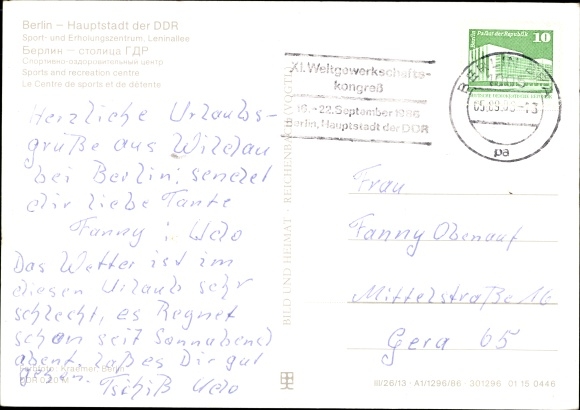 Berlin – Hauptstadt der DDR
Sport- und Erholungszentrum, Leninallee
Берлин – столица ГДР
Спортивно-оздоровительный центр
Sports and recreation centre
Le Centre de sports et de détente
Herzliche Urlaubs-
grüße aus Wildau
bei Berlin, sendet
dir liebe Tante
Fanny; Udo
Das Wetter ist im
diesen Urlaub sehr
schlecht, es Regnet
schon seit Sonnabend
abent. Laß es Dir gut
gehen. Tschiß Udo
Kraemer, Berlin
BILD UND HEIMAT · REICHENBACH (VOGTL)
XI. Weltgewerkschafts-
kongreß
16.-22. September 1986
Berlin, Hauptstadt der DDR
Berlin Palast der Republik
10
pa
Frau
Fanny Obenauf
Mittelstraße 16
Gera 65
III/26/13 · A1/1296/86 · 301296 01 15 0446